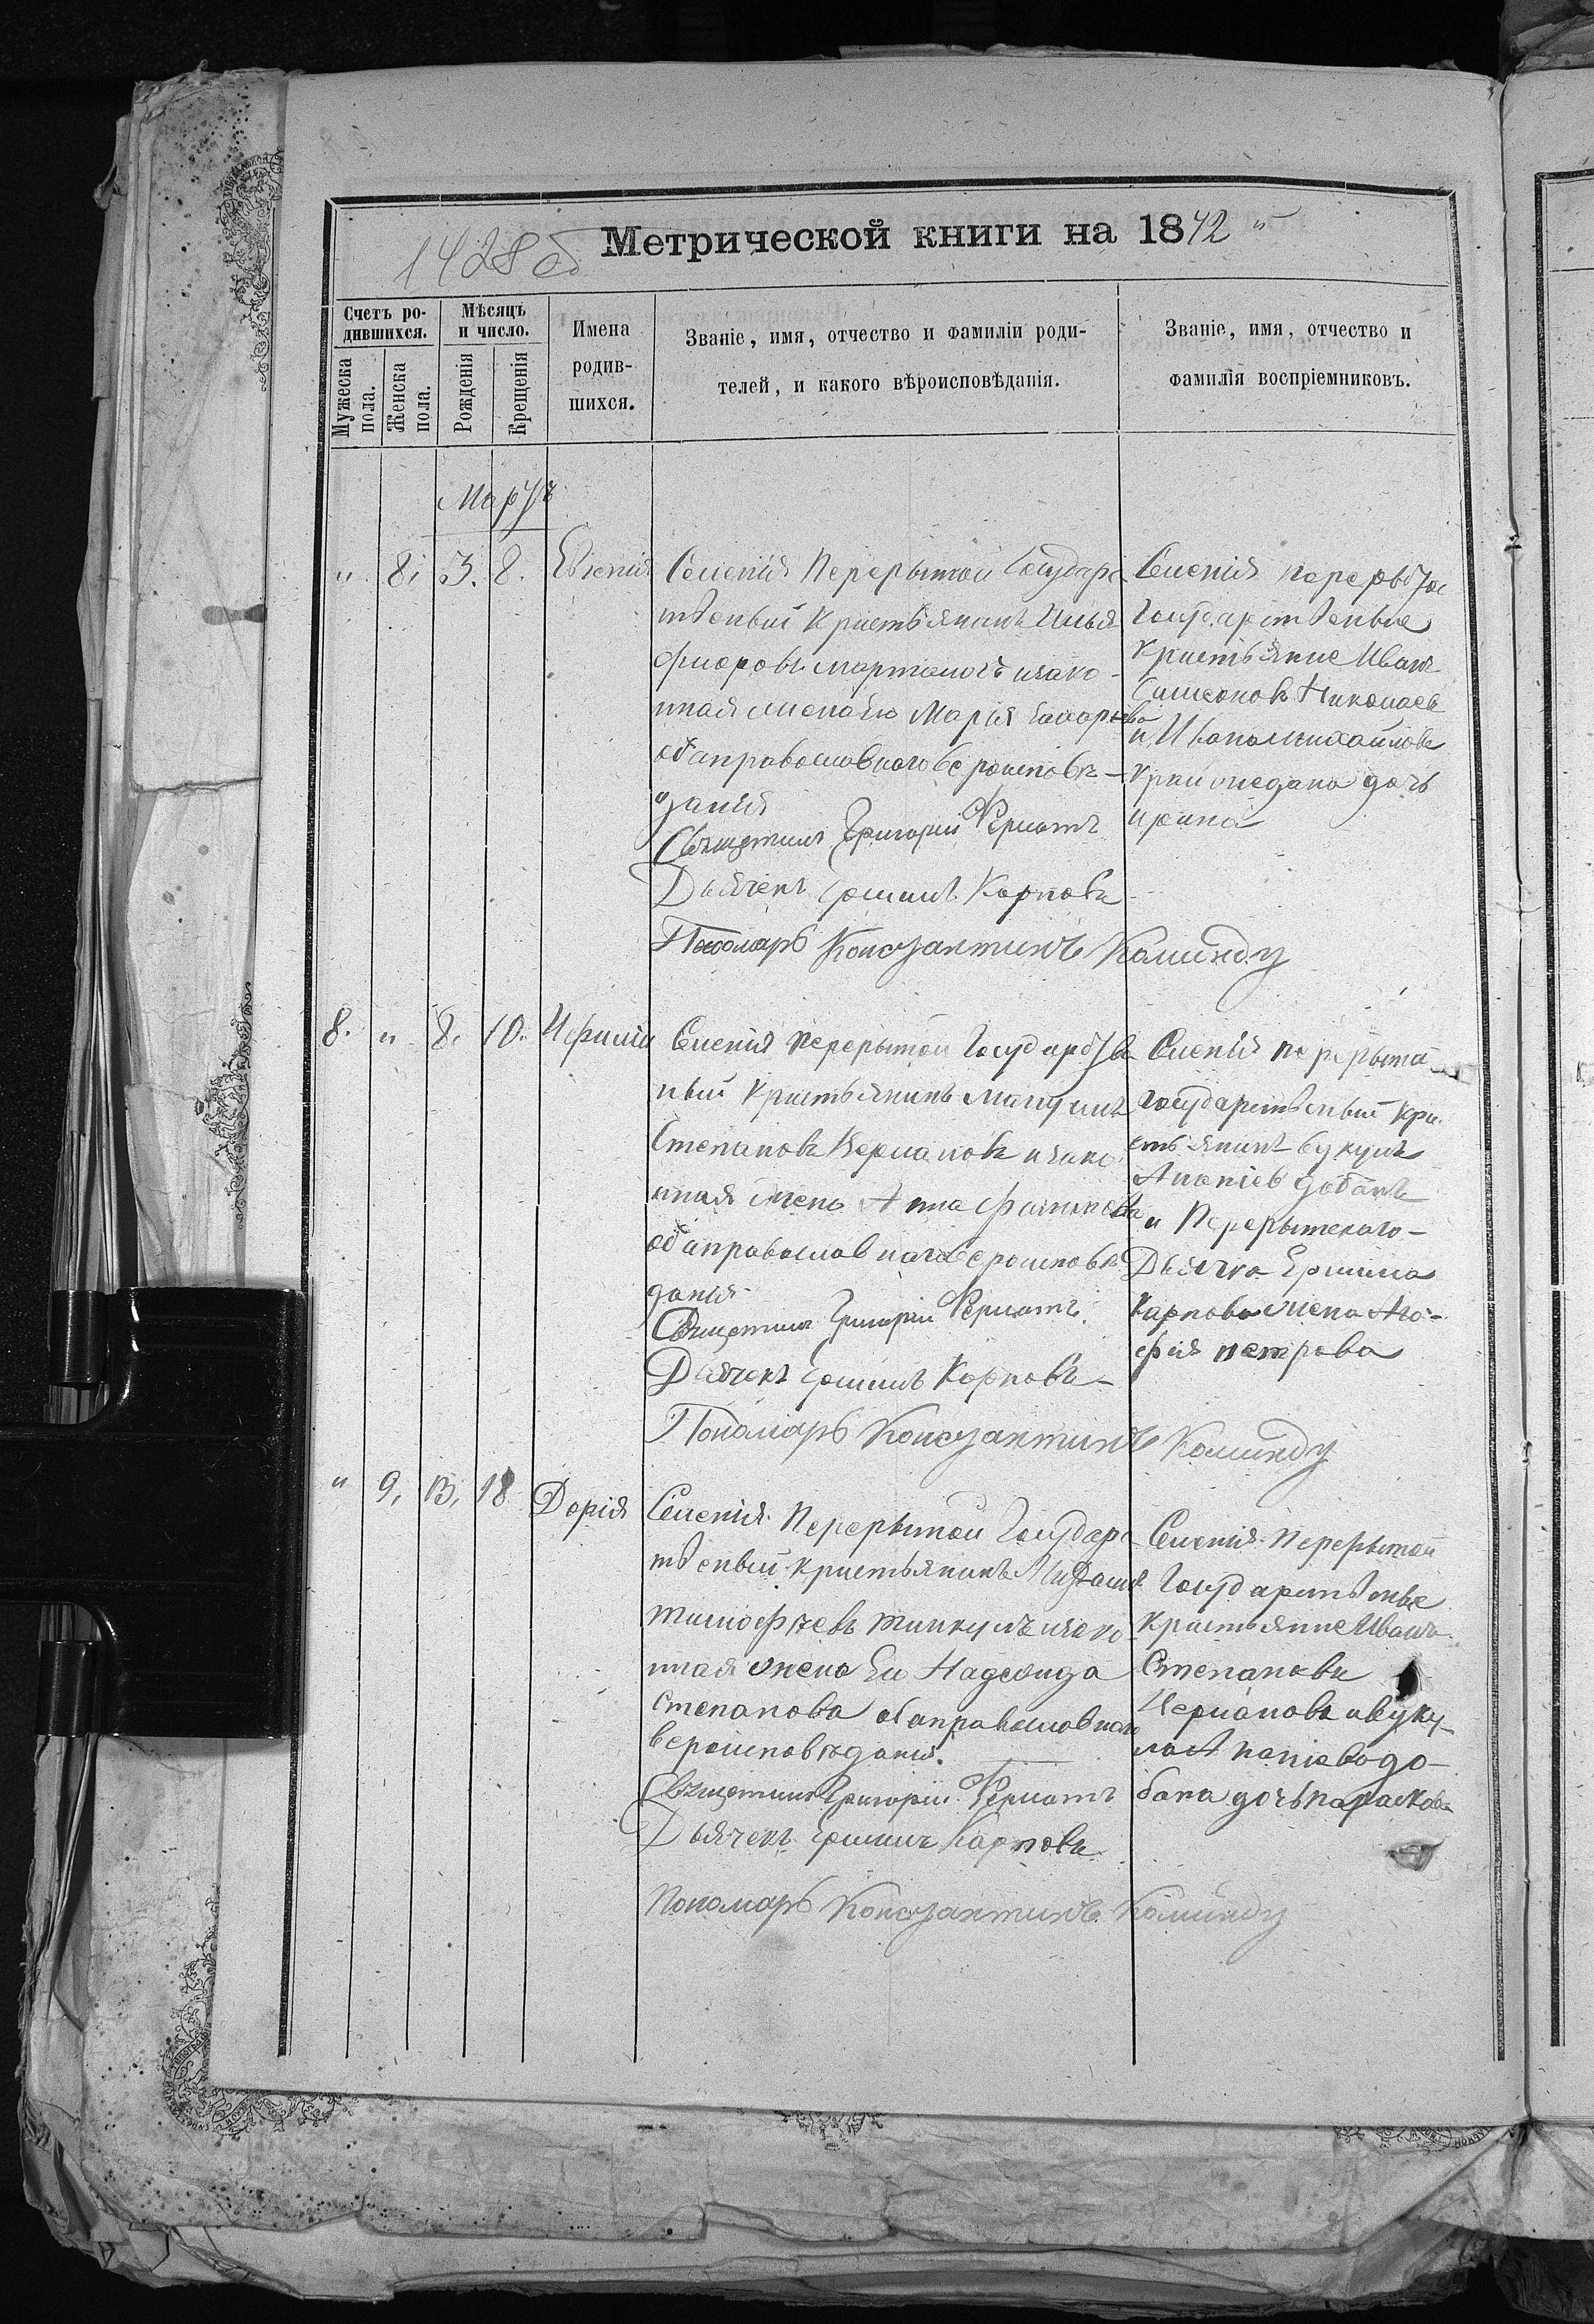 1428 об
Метрической книги на 1842
Счетъ ро-
дившихся.
Мужеска
пола.
Женска
пола.
Мѣсяцъ
и число.
Рожденія
Крещенія
Имена
родив-
шихся.
Званіе, имя, отчество и фамиліи роди-
телей, и какого вѣроисповѣданія.
Званіе, имя, отчество и
фамилія воспріемниковъ.
Мартъ
" 8. 3. 8. Евгенія
Селенія Перерытой Государс
твеный кристьянинъ Илья
мартиногъ изако-
нная Марія
обаправославнаго вероисповѣ-
данія
Свещеникъ Григорій
Дьячекъ Ермилъ Карповъ
Пономарь Константинъ Коминду
Селенія
Государственые
кристьяние Иванъ
Николаев
дочь
ирина
8. " 8. 10.
Селенія перерытой Государств
ный кристьянинъ
Степановъ изако
нная жена Анна
обаправославнаго вероисповѣ
данія
Свещеникъ Григорій
Дьячекъ Ермилъ Карповъ
Пономарь Константинъ Коминду
Селенія перерыта
Государственый кри
стьянинъ вукулъ
Ананіев добанъ
и Перерытскаго
Дьячка Ермила
Карпова жена Аго-
фія петрова
" 9. 13. 18 Дорія
Селенія Перерытой Государс
твеный кристьянинъ
тимофѣевъ изако
нная жена Ея Надежда
Степанова обаправославнаго
вероисповѣданія.
Свещеникъ Григорій
Дьячекъ Ермилъ Карповъ
Пономарь Константинъ Коминду
Селенія Перерытой
Государственые
кристьяние Иванъ
Степановъ
ивуку-
ла Ананіева до-
бана дочь параскова